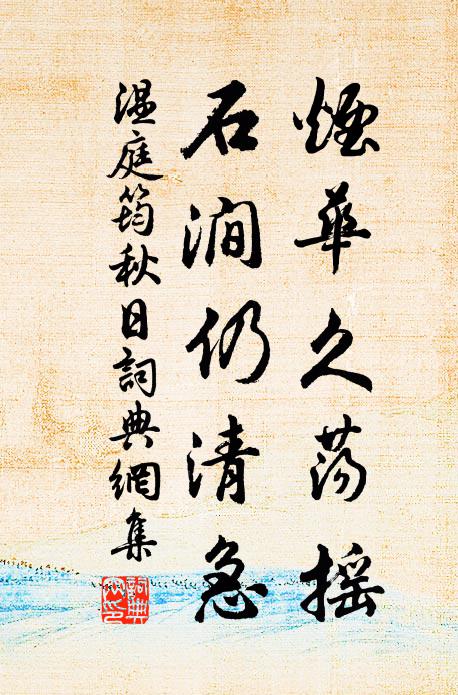 煙華久蕩搖
石澗仍清急
温庭筠秋日詞典網集